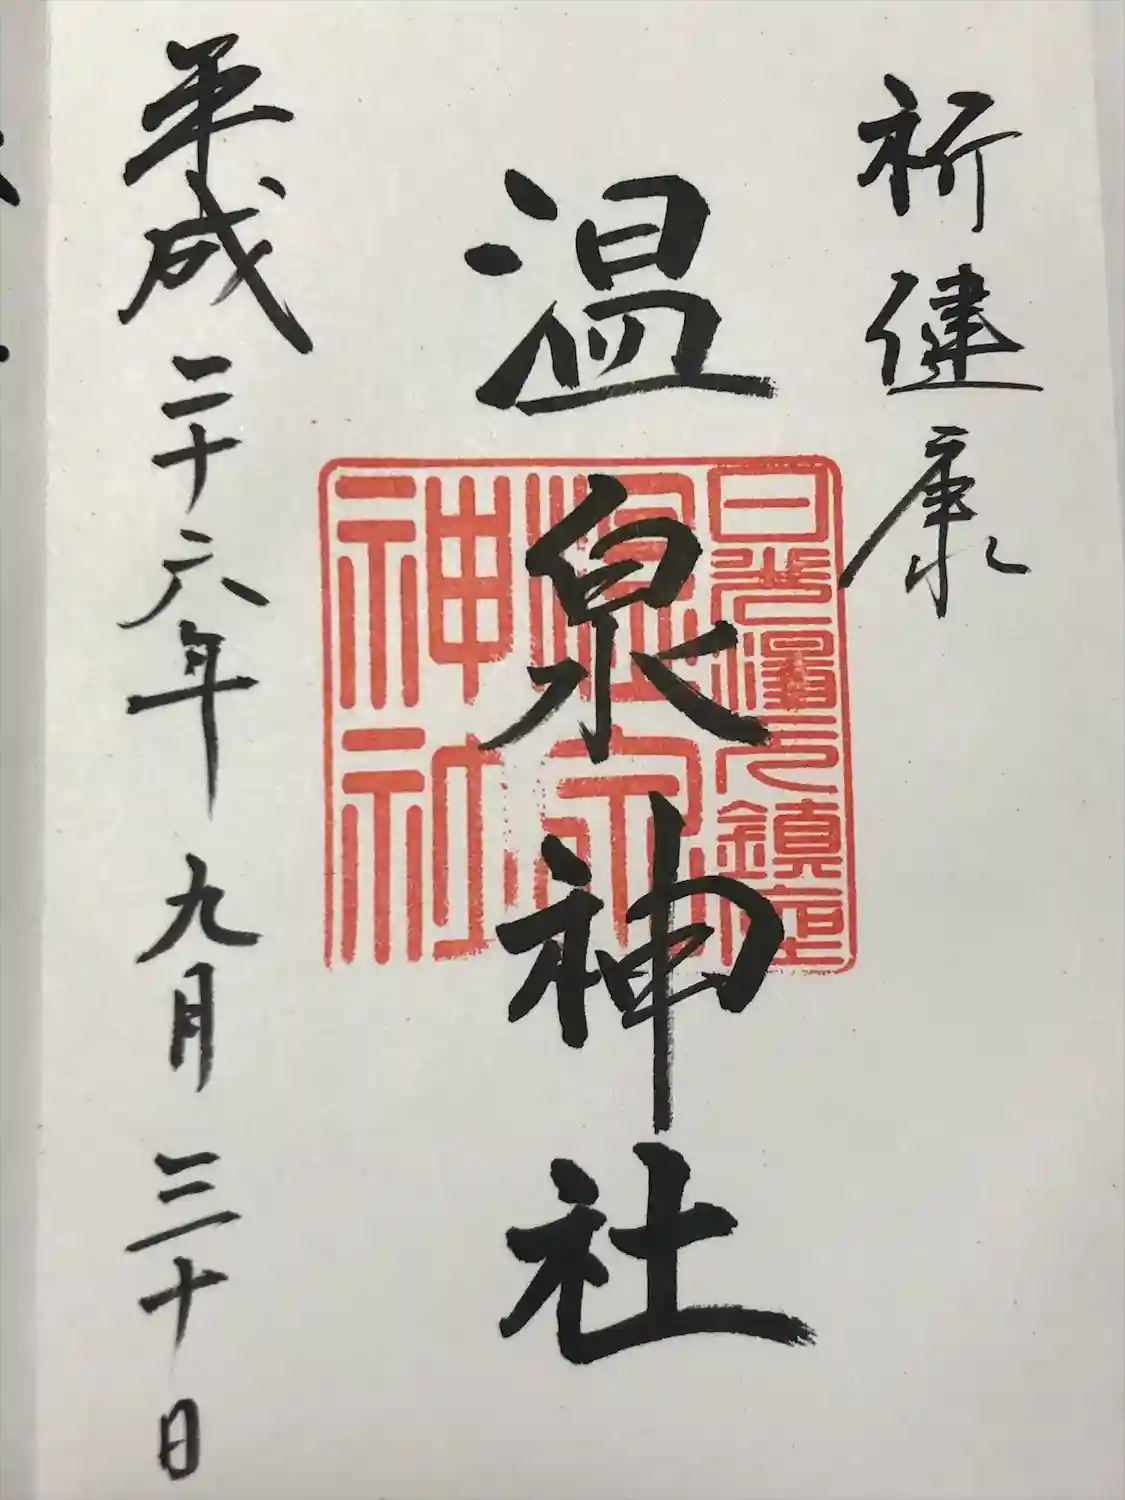 祈健康
温泉神社
日光澤之鎮座
神社
平成二十六年九月三十日